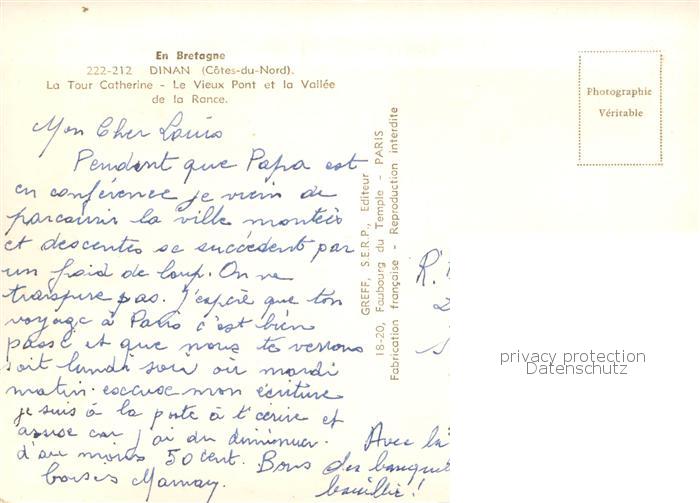 En Bretagne
222-212 DINAN (Côtes-du-Nord).
La Tour Catherine - Le Vieux Pont et la Vallée
de la Rance.
Photographie
Véritable
GREFF, S.E.R.P., Editeur
18-20, Faubourg du Temple - PARIS
Fabrication française - Reproduction interdite
Mon Cher Louis
Pendant que Papa est
en conférence je viens de
parcourir la ville montées
et descentes se succèdent par
un froid de loup. On ne
transpire pas. J'espère que ton
voyage à Paris c'est bien
passé et que nous te verrons
soit lundi soir où mardi
matin. excuse mon écriture
je suis à la poste à t'écrire et
assise car j'ai du diminuer
d'au moins 50 cent. Bons
baisers Maman
Avec la
des banque
bouillie!
R.
2
privacy protection
Datenschutz